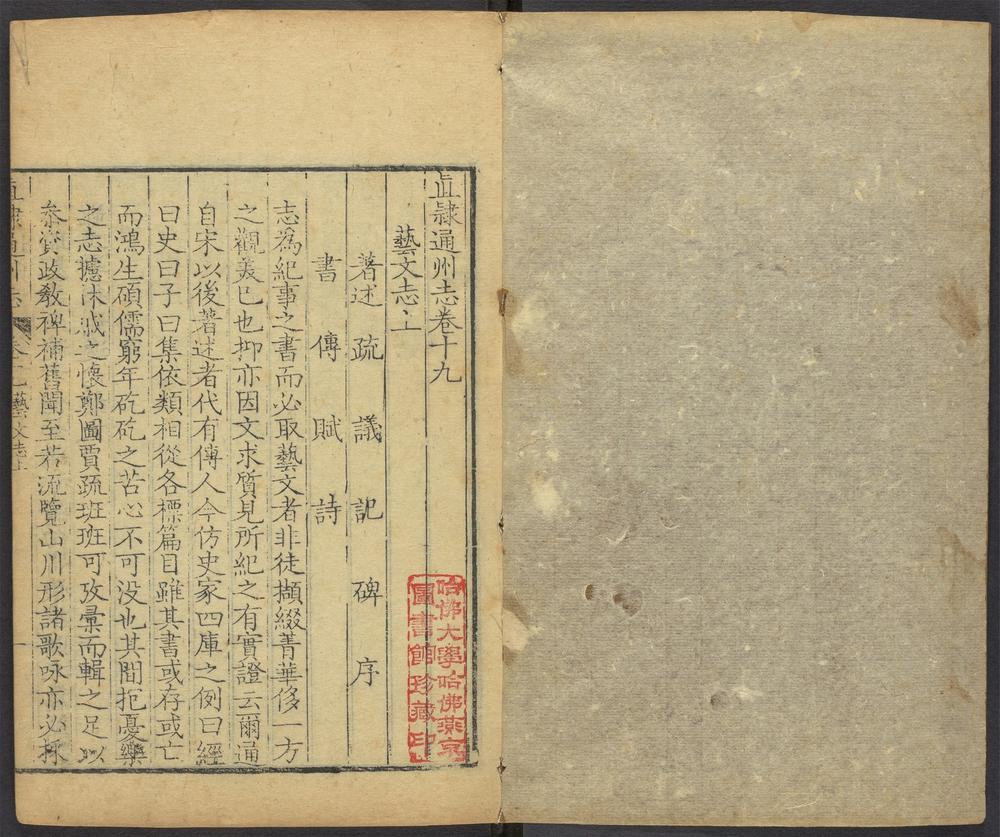 直隸通州志卷十九
藝文志上
著述 疏 議 記 碑 序
書 傳 賦 詩
志為紀事之書而必取藝文者非徒擷綴菁華侈一方
之觀美已也抑亦因文求質見所紀之有實證云爾通
自宋以後著述者代有傳人今仿史家四庫之例曰經
曰史曰子曰集依類相從各標篇目雖其書或存或亡
而鴻生碩儒窮年矻矻之苦心不可没也其間抱憂樂
之志攄休戚之懷鄭圖賈疏班班可攷彙而輯之足以
叅資政敎裨補舊聞至若流覽山川形諸歌咏亦必採
直隸通州志 卷十九 藝文志上 一
哈佛大學哈佛燕京
圖書館珍藏印